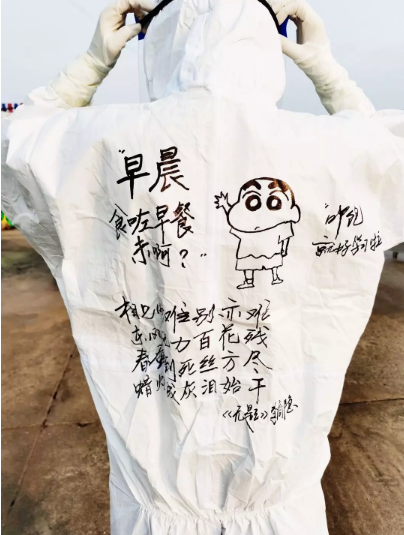 "早晨
食咗早餐
未啊？"
好学习啦
相见时难别亦难
东风无力百花残
春蚕到死丝方尽
蜡炬成灰泪始干
《无题》李商隐